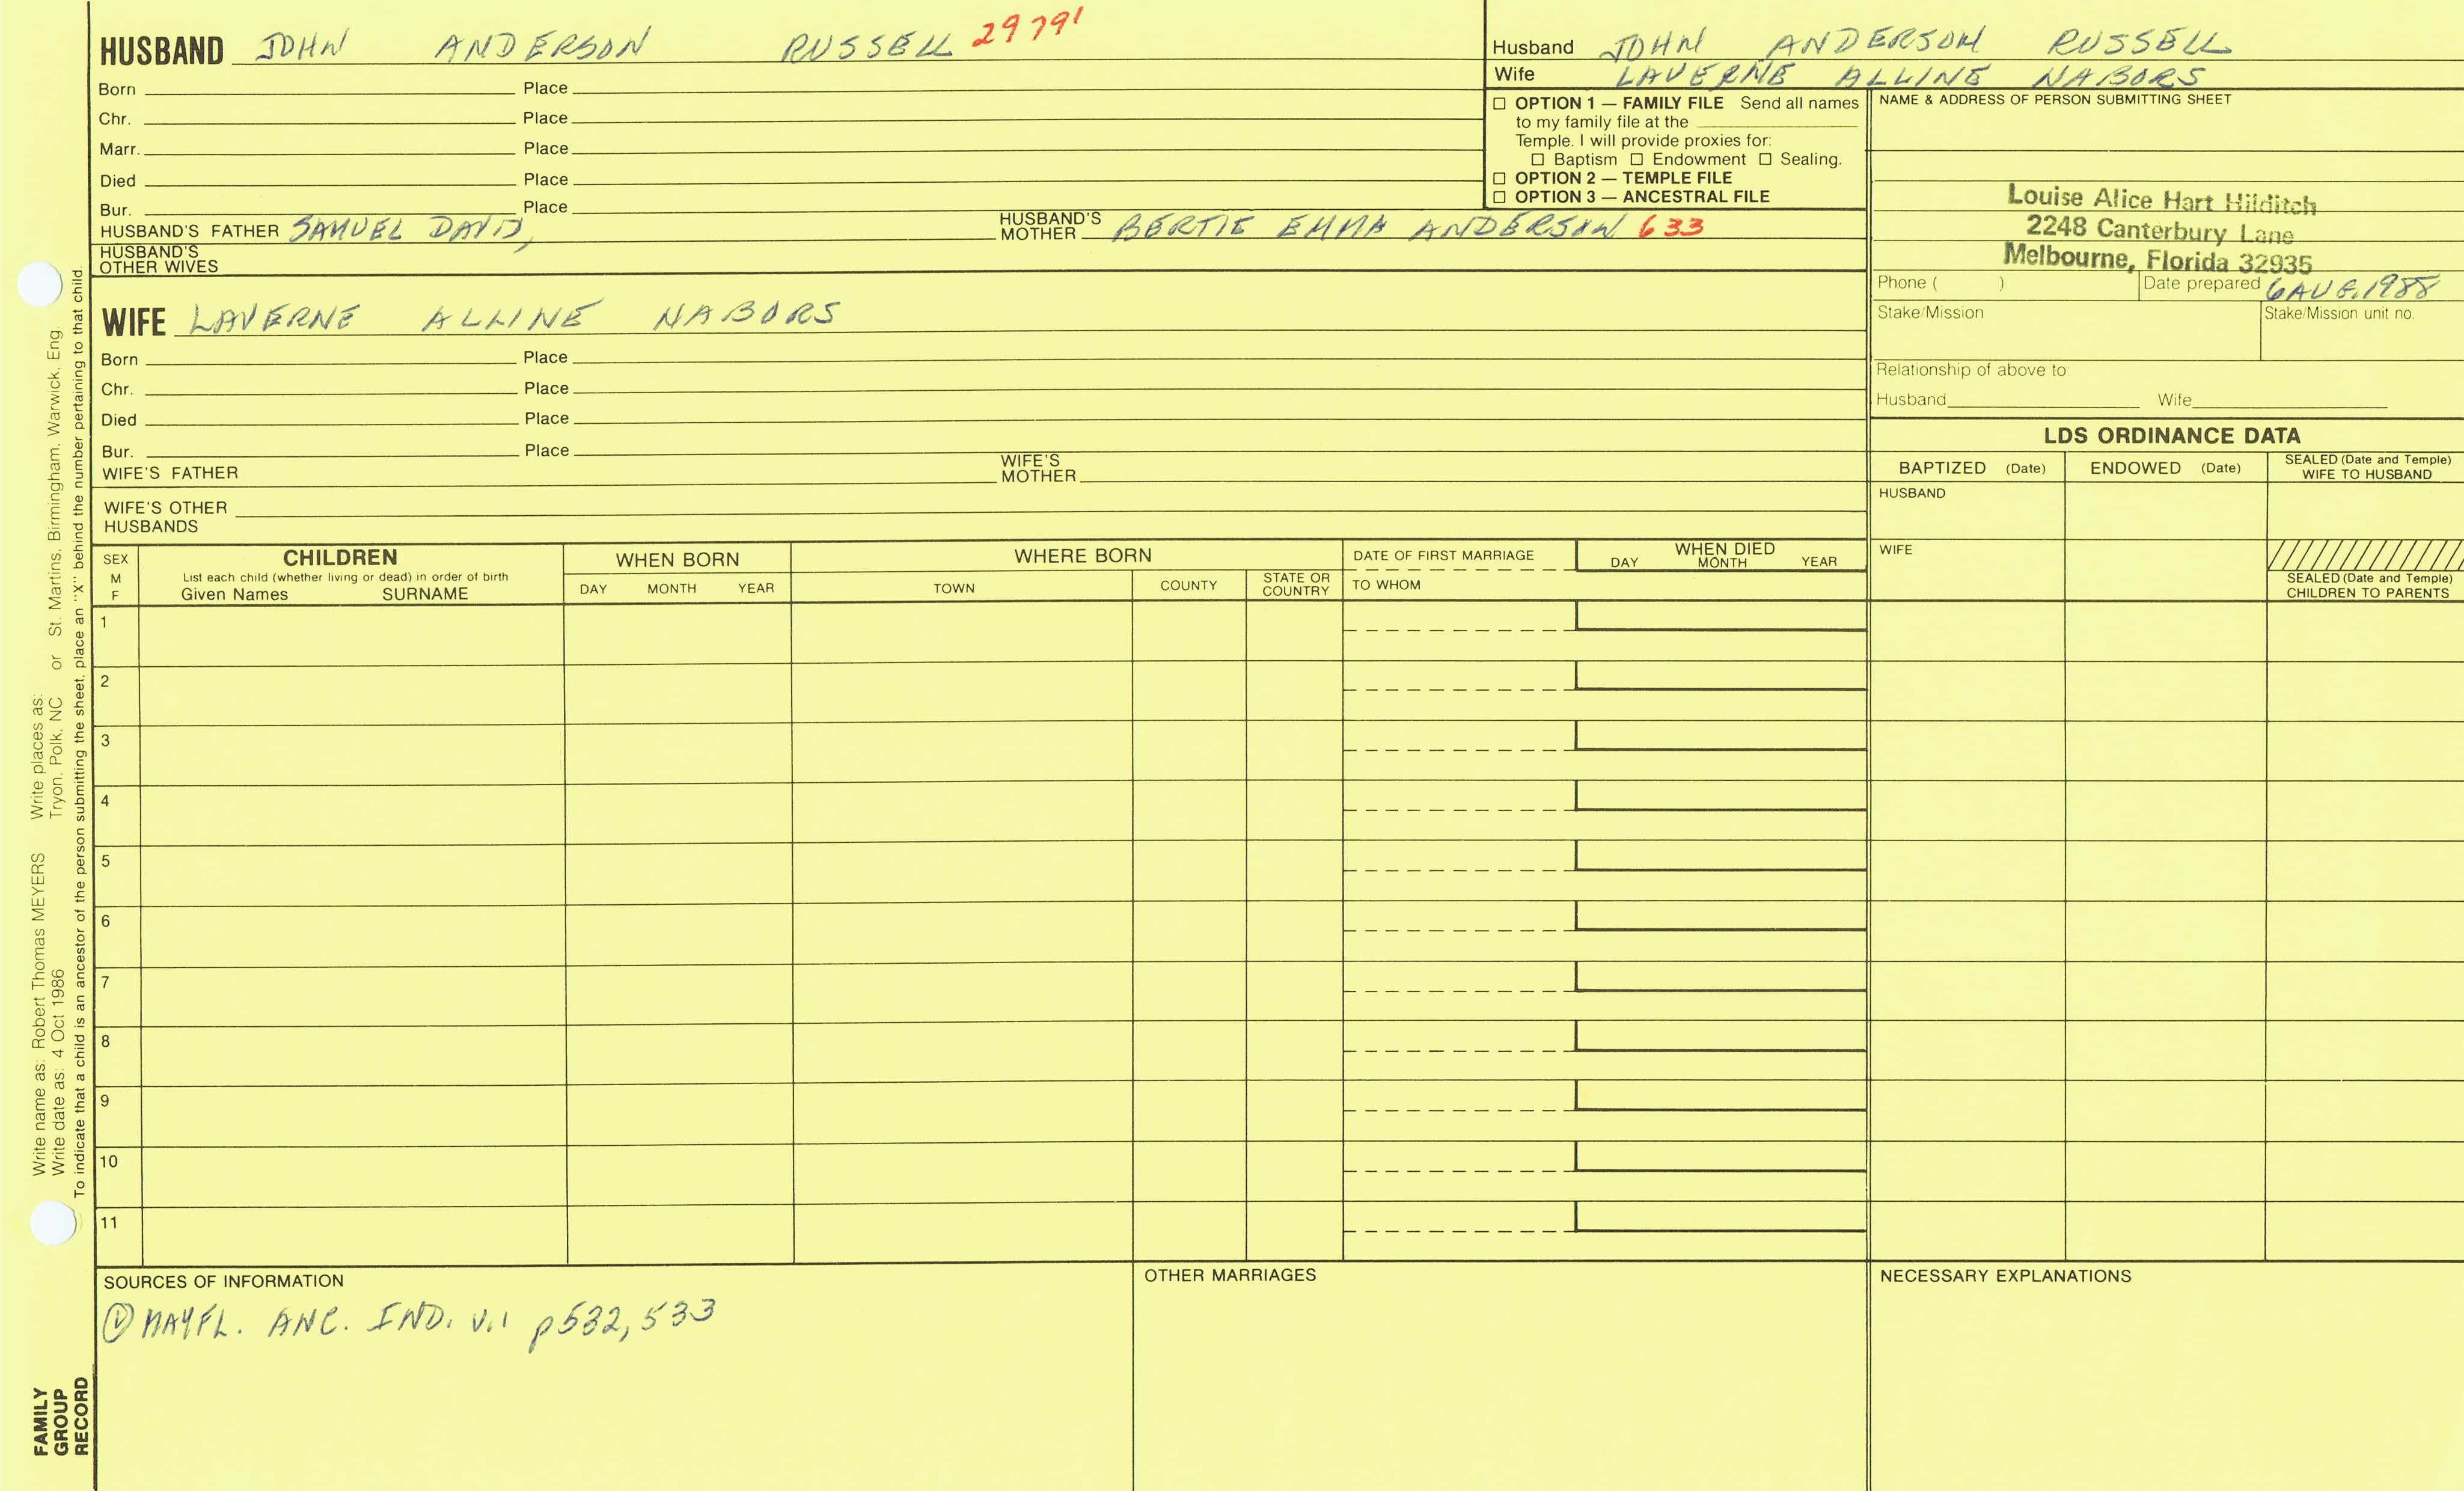 HUSBAND JOHN ANDERSON RUSSELL 29791
Born Place
Chr. Place
Marr. Place
Died Place
Bur. Place
HUSBAND'S FATHER SAMUEL DAVID, HUSBAND'S MOTHER BERTIE EMMA ANDERSON 633
HUSBAND'S OTHER WIVES
WIFE LAVERNE ALLINE NABORS
Born Place
Chr. Place
Died Place
Bur. Place
WIFE'S FATHER WIFE'S MOTHER
WIFE'S OTHER HUSBANDS
Husband JOHN ANDERSON RUSSELL
Wife LAVERNE ALLINE NABORS
☐ OPTION 1 — FAMILY FILE Send all names
to my family file at the
Temple. I will provide proxies for:
☐ Baptism ☐ Endowment ☐ Sealing.
☐ OPTION 2 — TEMPLE FILE
☐ OPTION 3 — ANCESTRAL FILE
NAME & ADDRESS OF PERSON SUBMITTING SHEET
Louise Alice Hart Hilditch
2248 Canterbury Lane
Melbourne, Florida 32935
Phone ( ) Date prepared 6 AUG. 1988
Stake/Mission Stake/Mission unit no.
Relationship of above to:
Husband Wife
LDS ORDINANCE DATA
BAPTIZED (Date) ENDOWED (Date) SEALED (Date and Temple) WIFE TO HUSBAND
HUSBAND
WIFE
SEALED (Date and Temple) CHILDREN TO PARENTS
SEX M F
CHILDREN
List each child (whether living or dead) in order of birth
Given Names SURNAME
WHEN BORN
DAY MONTH YEAR
WHERE BORN
TOWN COUNTY STATE OR COUNTRY
DATE OF FIRST MARRIAGE
TO WHOM
WHEN DIED
DAY MONTH YEAR
1
2
3
4
5
6
7
8
9
10
11
SOURCES OF INFORMATION
① MAYFL. ANC. IND. V.1 p532,533
OTHER MARRIAGES
NECESSARY EXPLANATIONS
Write name as: Robert Thomas MEYERS Write places as:
Write date as: 4 Oct 1986 Tryon, Polk, NC or St. Martins, Birmingham, Warwick, Eng
To indicate that a child is an ancestor of the person submitting the sheet, place an "X" behind the number pertaining to that child.
FAMILY
GROUP
RECORD